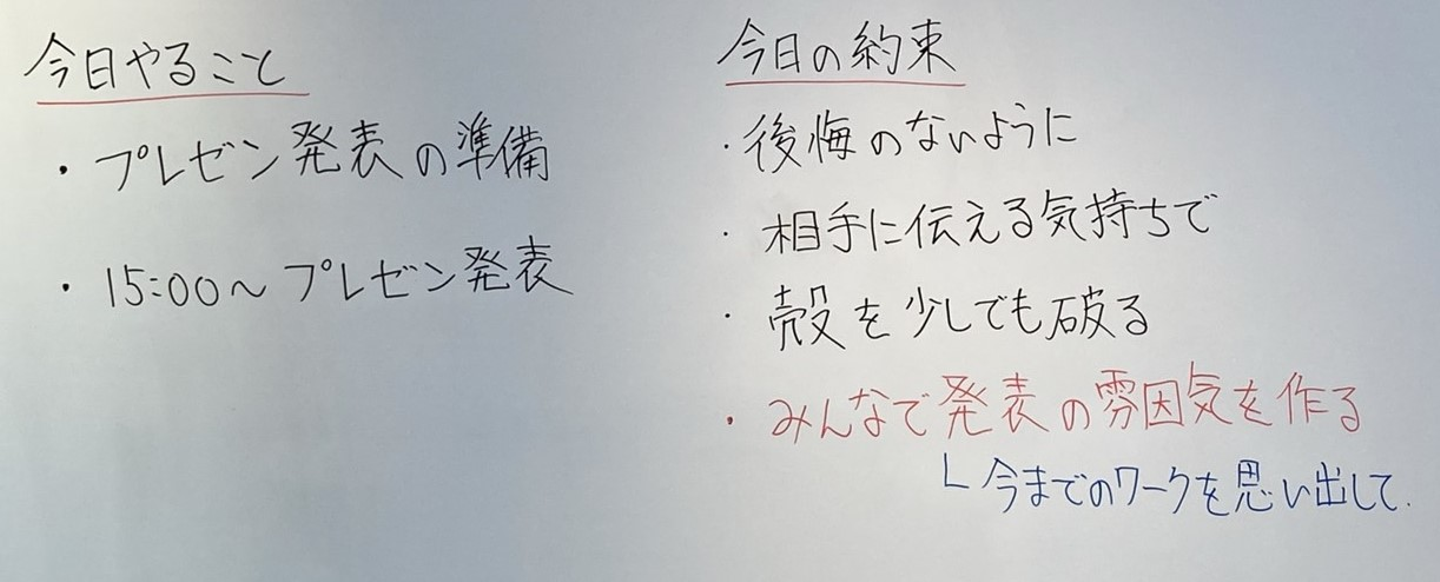 今日やること
・プレゼン発表の準備
・15:00～プレゼン発表
今日の約束
・後悔のないように
・相手に伝える気持ちで
・殻を少しでも破る
・みんなで発表の雰囲気を作る
└今までのワークを思い出して.